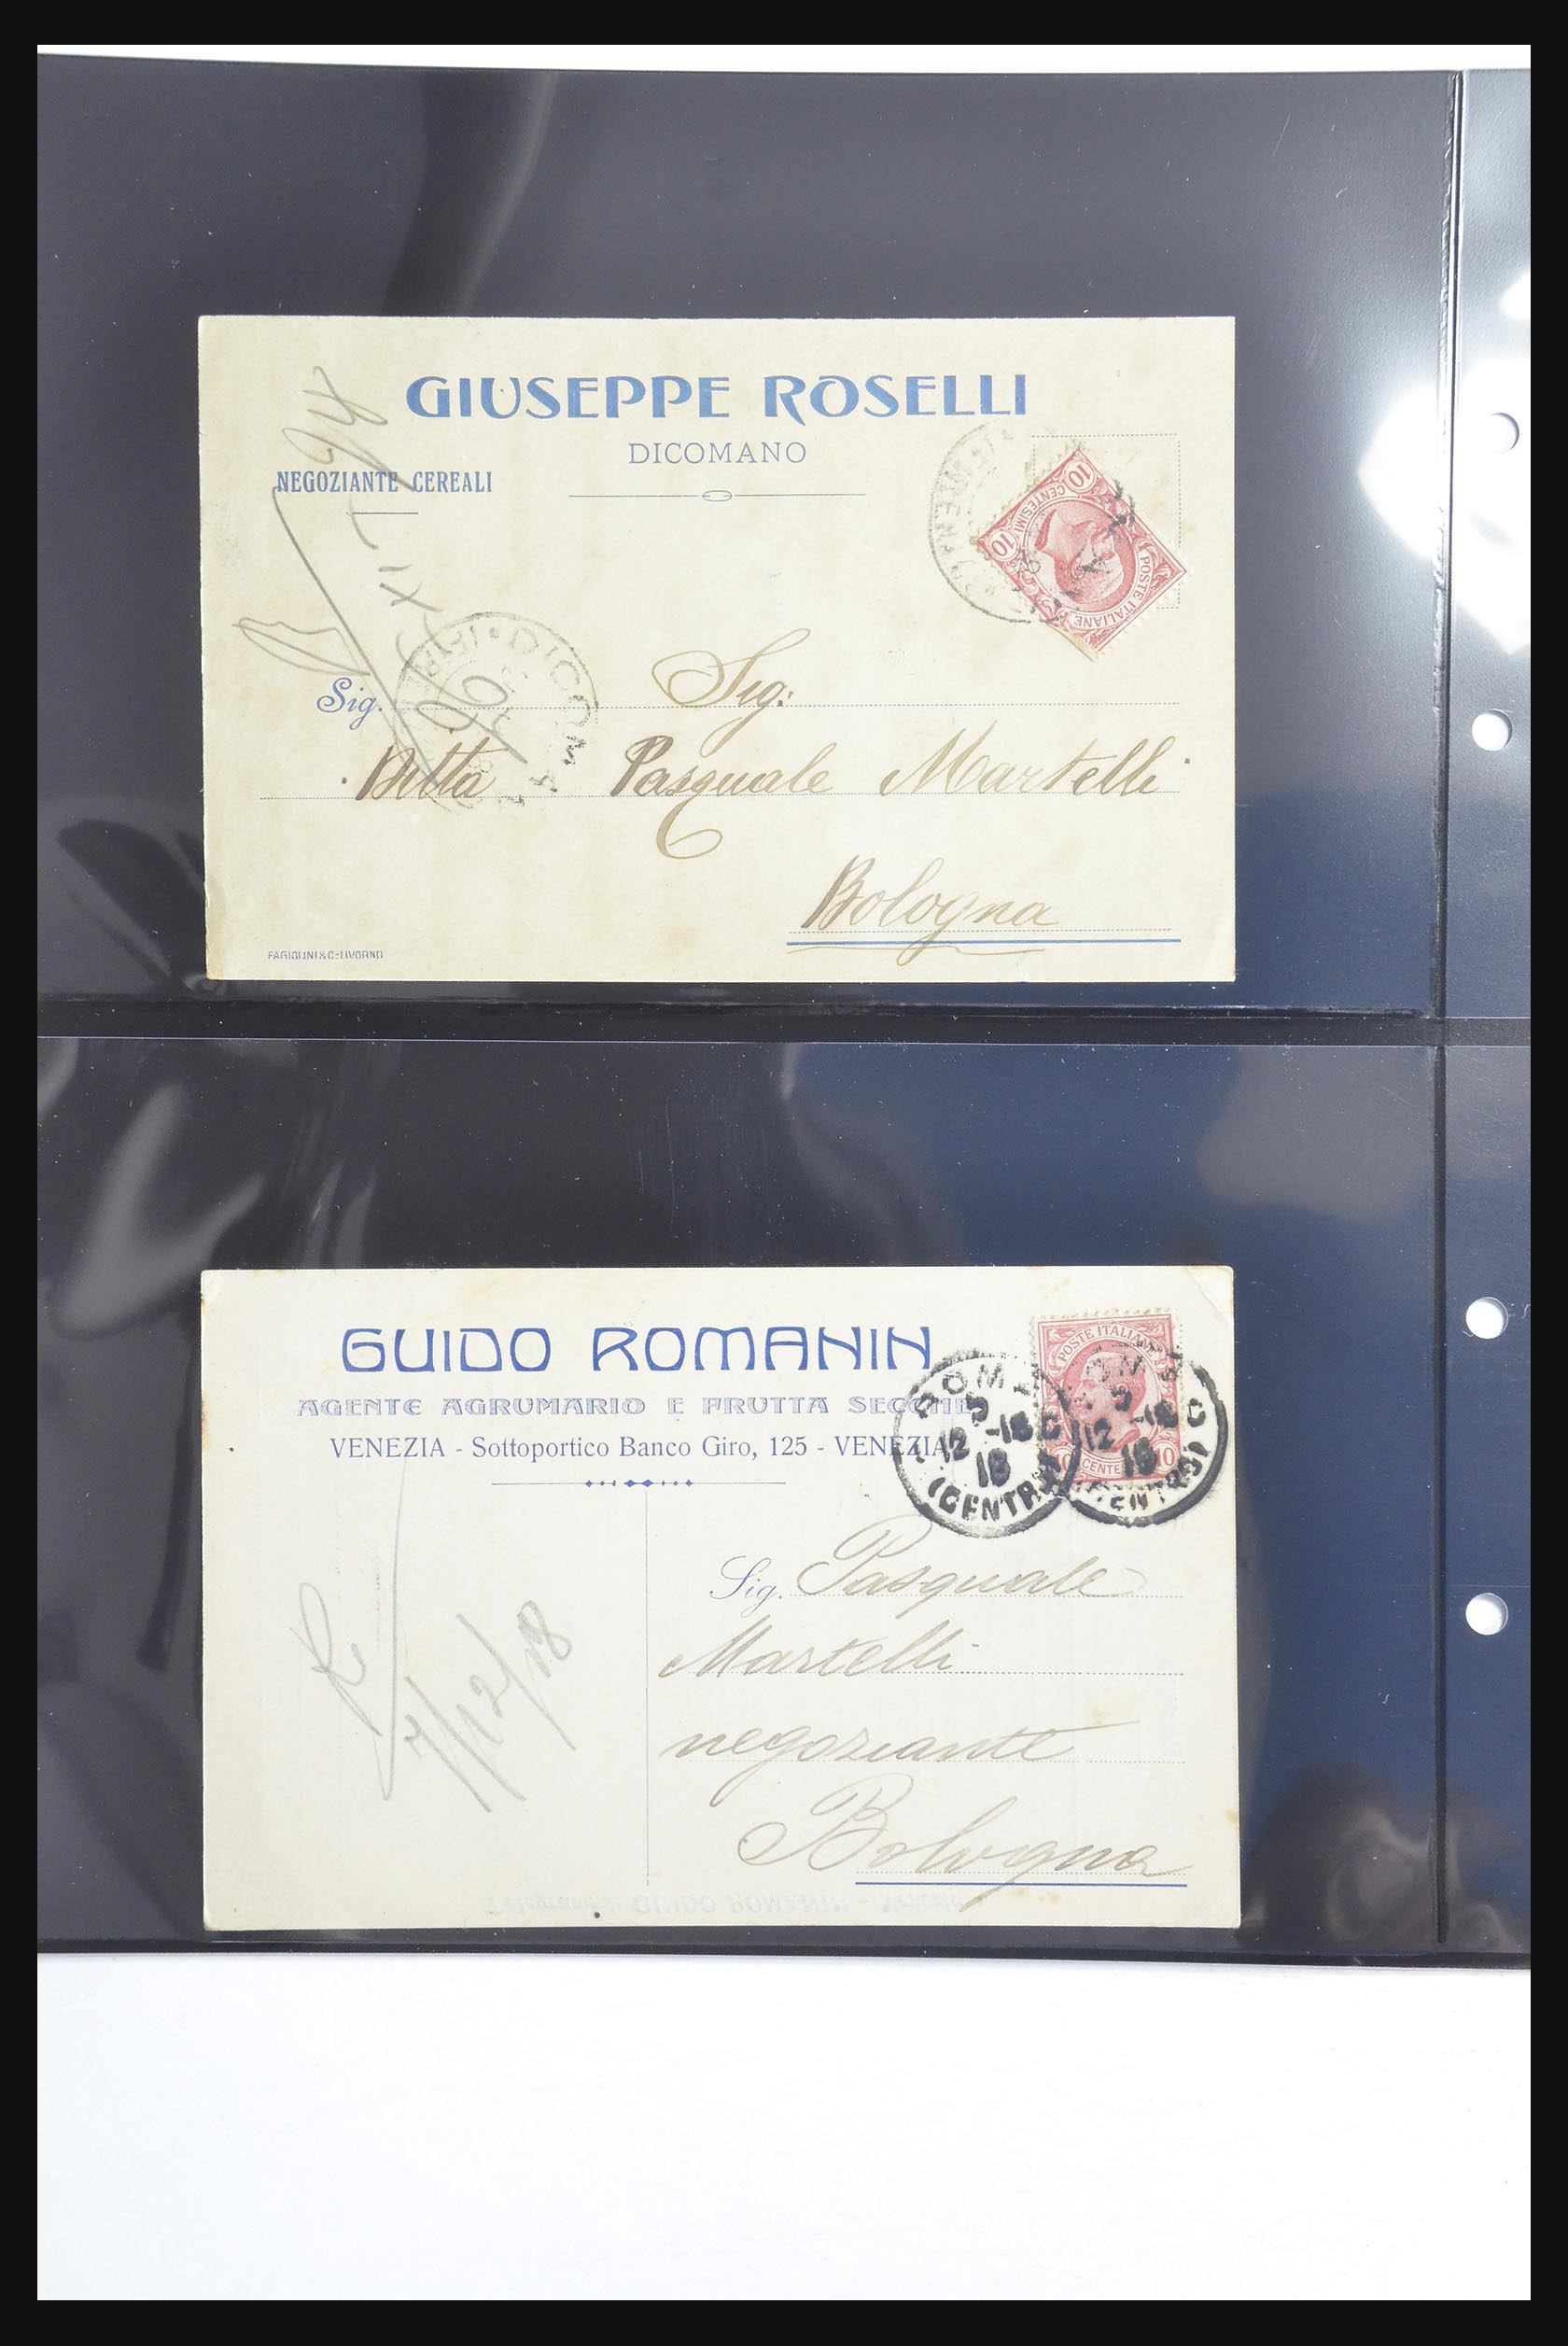 GIUSEPPE ROSELLI
DICOMANO
NEGOZIANTE CEREALI
10 CENTESIMI 10
POSTE ITALIANE
Sig. Sig:
Ditta Pasquale Martelli
Bologna
FAGIOLINI & C.-LIVORNO
GUIDO ROMANIN
AGENTE AGRUMARIO E FRUTTA SECCHE
VENEZIA - Sottoportico Banco Giro, 125 - VENEZIA
POSTE ITALIANE
ROMA
12 -18
18
(CENTR
12 -18
18
Sig. Pasquale
Martelli
negoziante
Bologna
7/12/18